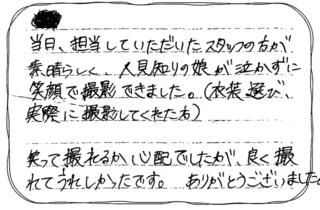 当日、担当していただいたスタッフの方が
素晴らしく、人見知りの娘が泣かずに
笑顔で撮影できました。(衣装選び、
実際に撮影してくれた方)
笑って撮れるか心配でしたが、良く撮
れてうれしかったです。 ありがとうございました。